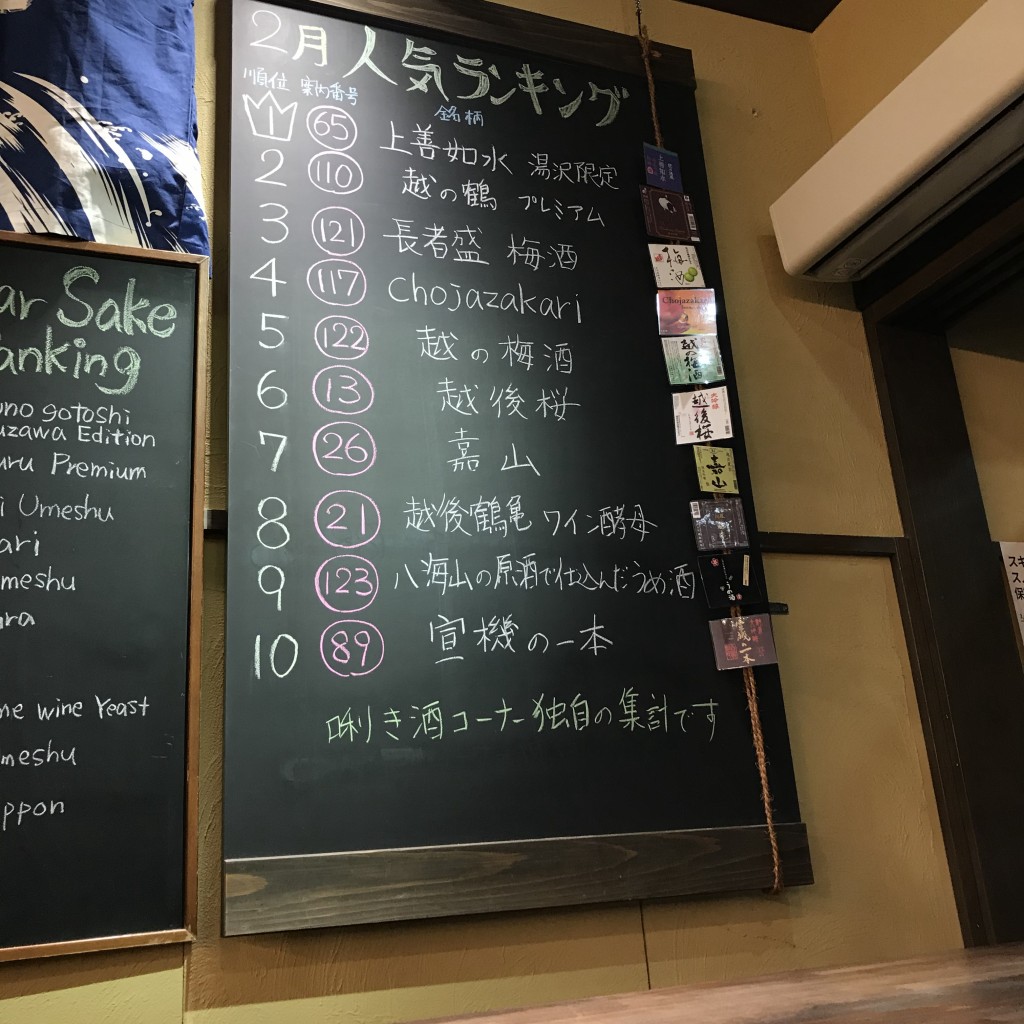 2月人気ランキング
順位 案内番号 銘柄
1 65 上善如水 湯沢限定
2 110 越の鶴 プレミアム
3 121 長者盛 梅酒
4 117 Chojazakari
5 122 越の梅酒
6 13 越後桜
7 26 嘉山
8 21 越後鶴亀 ワイン酵母
9 123 八海山の原酒で仕込んだうめ酒
10 89 宣機の一本
唎き酒コーナー独自の集計です
ar Sake
anking
uno gotoshi
uzawa Edition
uru Premium
i Umeshu
ari
meshu
ura
ne wine Yeast
meshu
ppon
梅酒
Chojazakari
越の梅酒
越後桜
嘉山